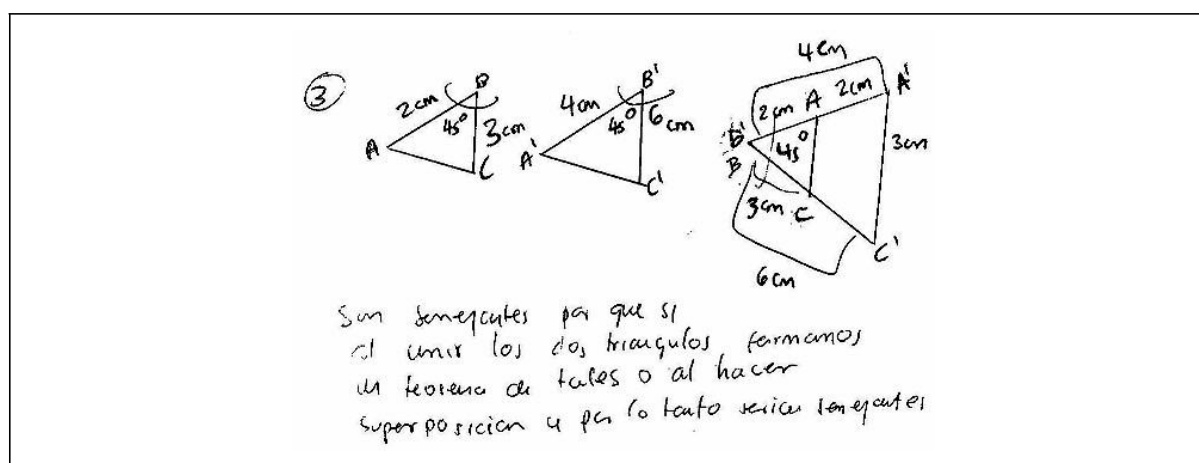 3
B
2cm
45°
3cm
A
C
B'
4cm
45°
6cm
A'
C'
4cm
A'
2cm A 2cm
B'
45°
3cm
B
3cm C
C'
6cm
Son semejantes por que si
al unir los dos triangulos formamos
un teorema de tales o al hacer
superposicion y por lo tanto serian semejantes